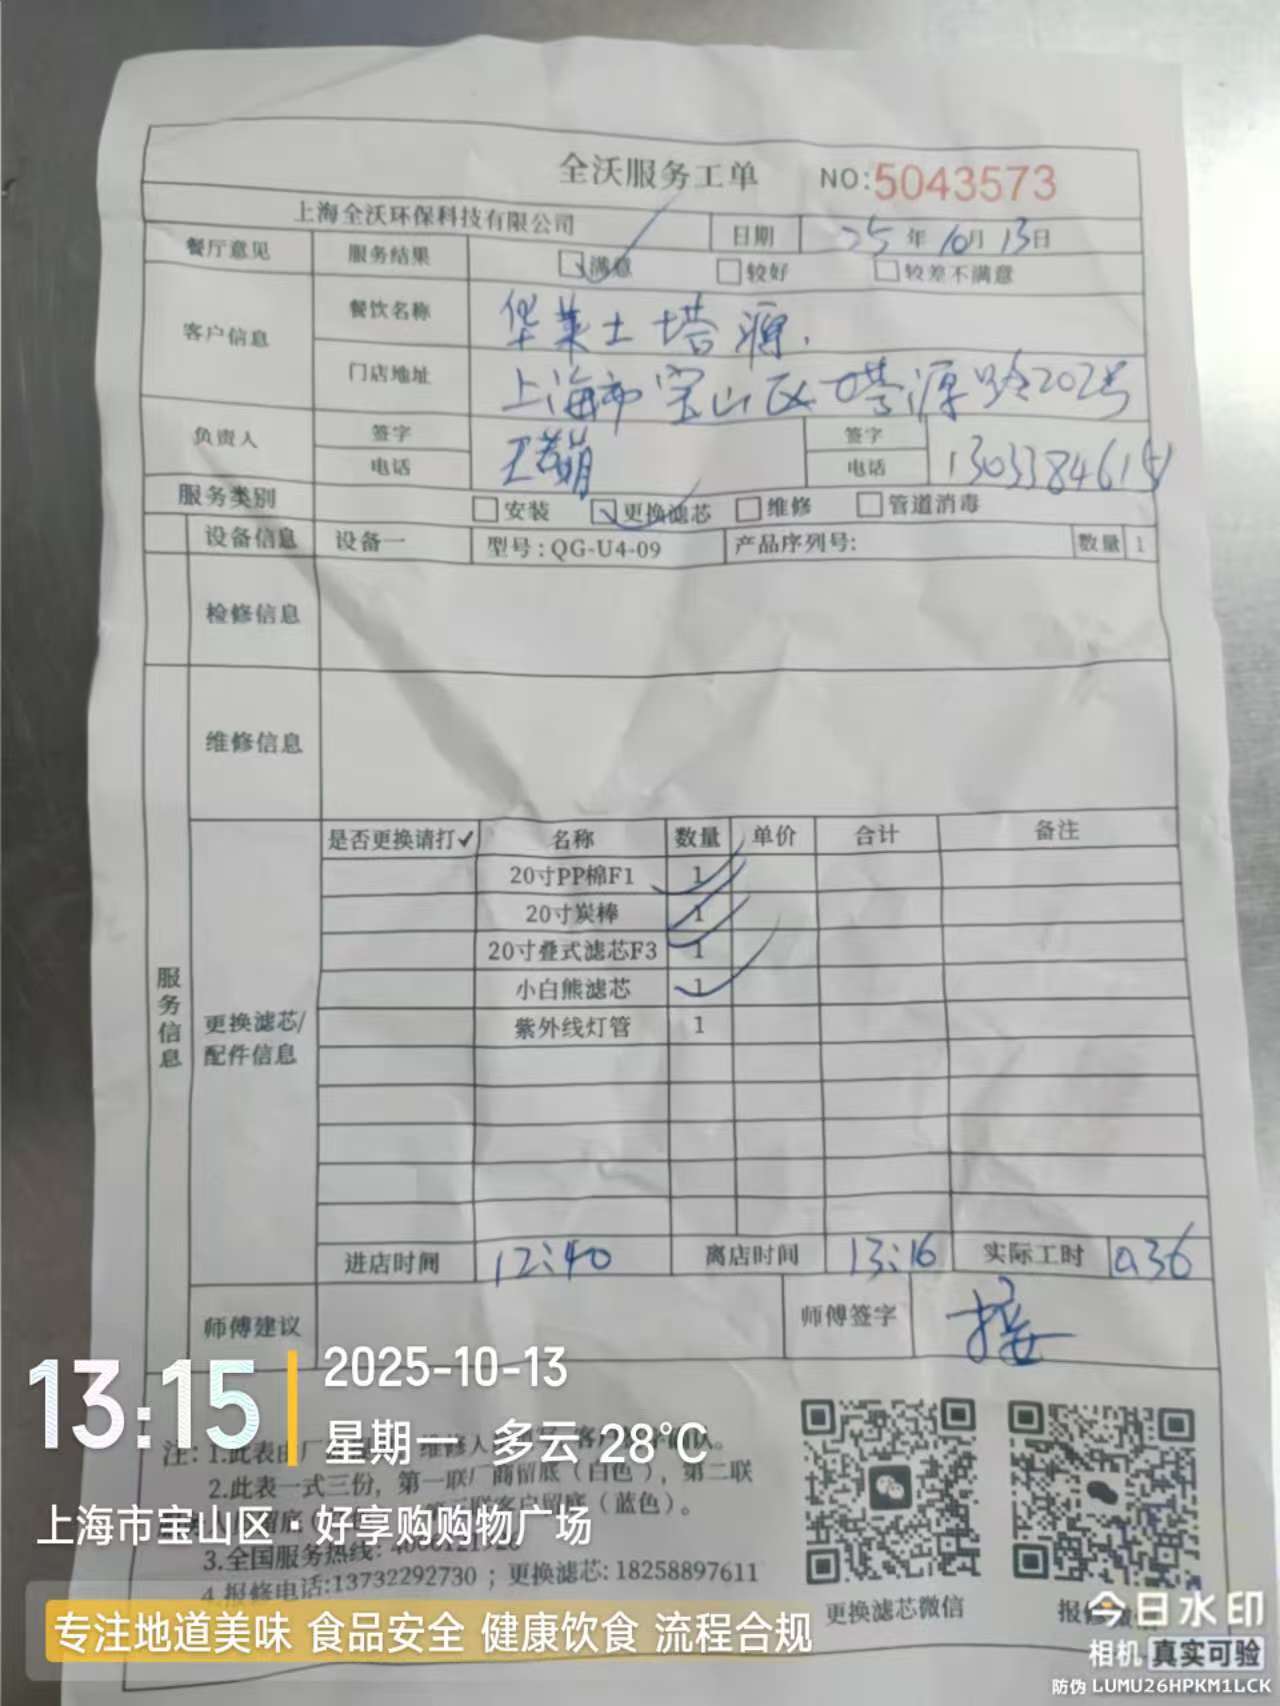 全沃服务工单 NO:5043573
上海全沃环保科技有限公司 日期 25年10月13日
餐厅意见 服务结果 满意 较好 较差不满意
客户信息 餐饮名称 华莱士塔源
门店地址 上海市宝山区塔源路202号
负责人 签字 签字
电话 电话
服务类别 安装 更换滤芯 维修 管道消毒
设备信息 设备一 型号:QG-U4-09 产品序列号: 数量 1
检修信息
维修信息
服务信息
更换滤芯/配件信息
是否更换请打✓ 名称 数量 单价 合计 备注
20寸PP棉F1 1
20寸炭棒 1
20寸叠式滤芯F3 1
小白熊滤芯 1
紫外线灯管 1
进店时间 12:40 离店时间 13:16 实际工时 0.36
师傅建议 师傅签字
13:15
2025-10-13
星期一 多云 28°C
上海市宝山区·好享购购物广场
注: 1.此表由厂
2.此表一式三份，第一联厂商留底（白色），第二联
联客户留底（蓝色）。
3.全国服务热线:
4.报修电话:13732292730 ；更换滤芯: 18258897611
更换滤芯微信
专注地道美味 食品安全 健康饮食 流程合规
今日水印
相机 真实可验
防伪 LUMU26HPKM1LCK